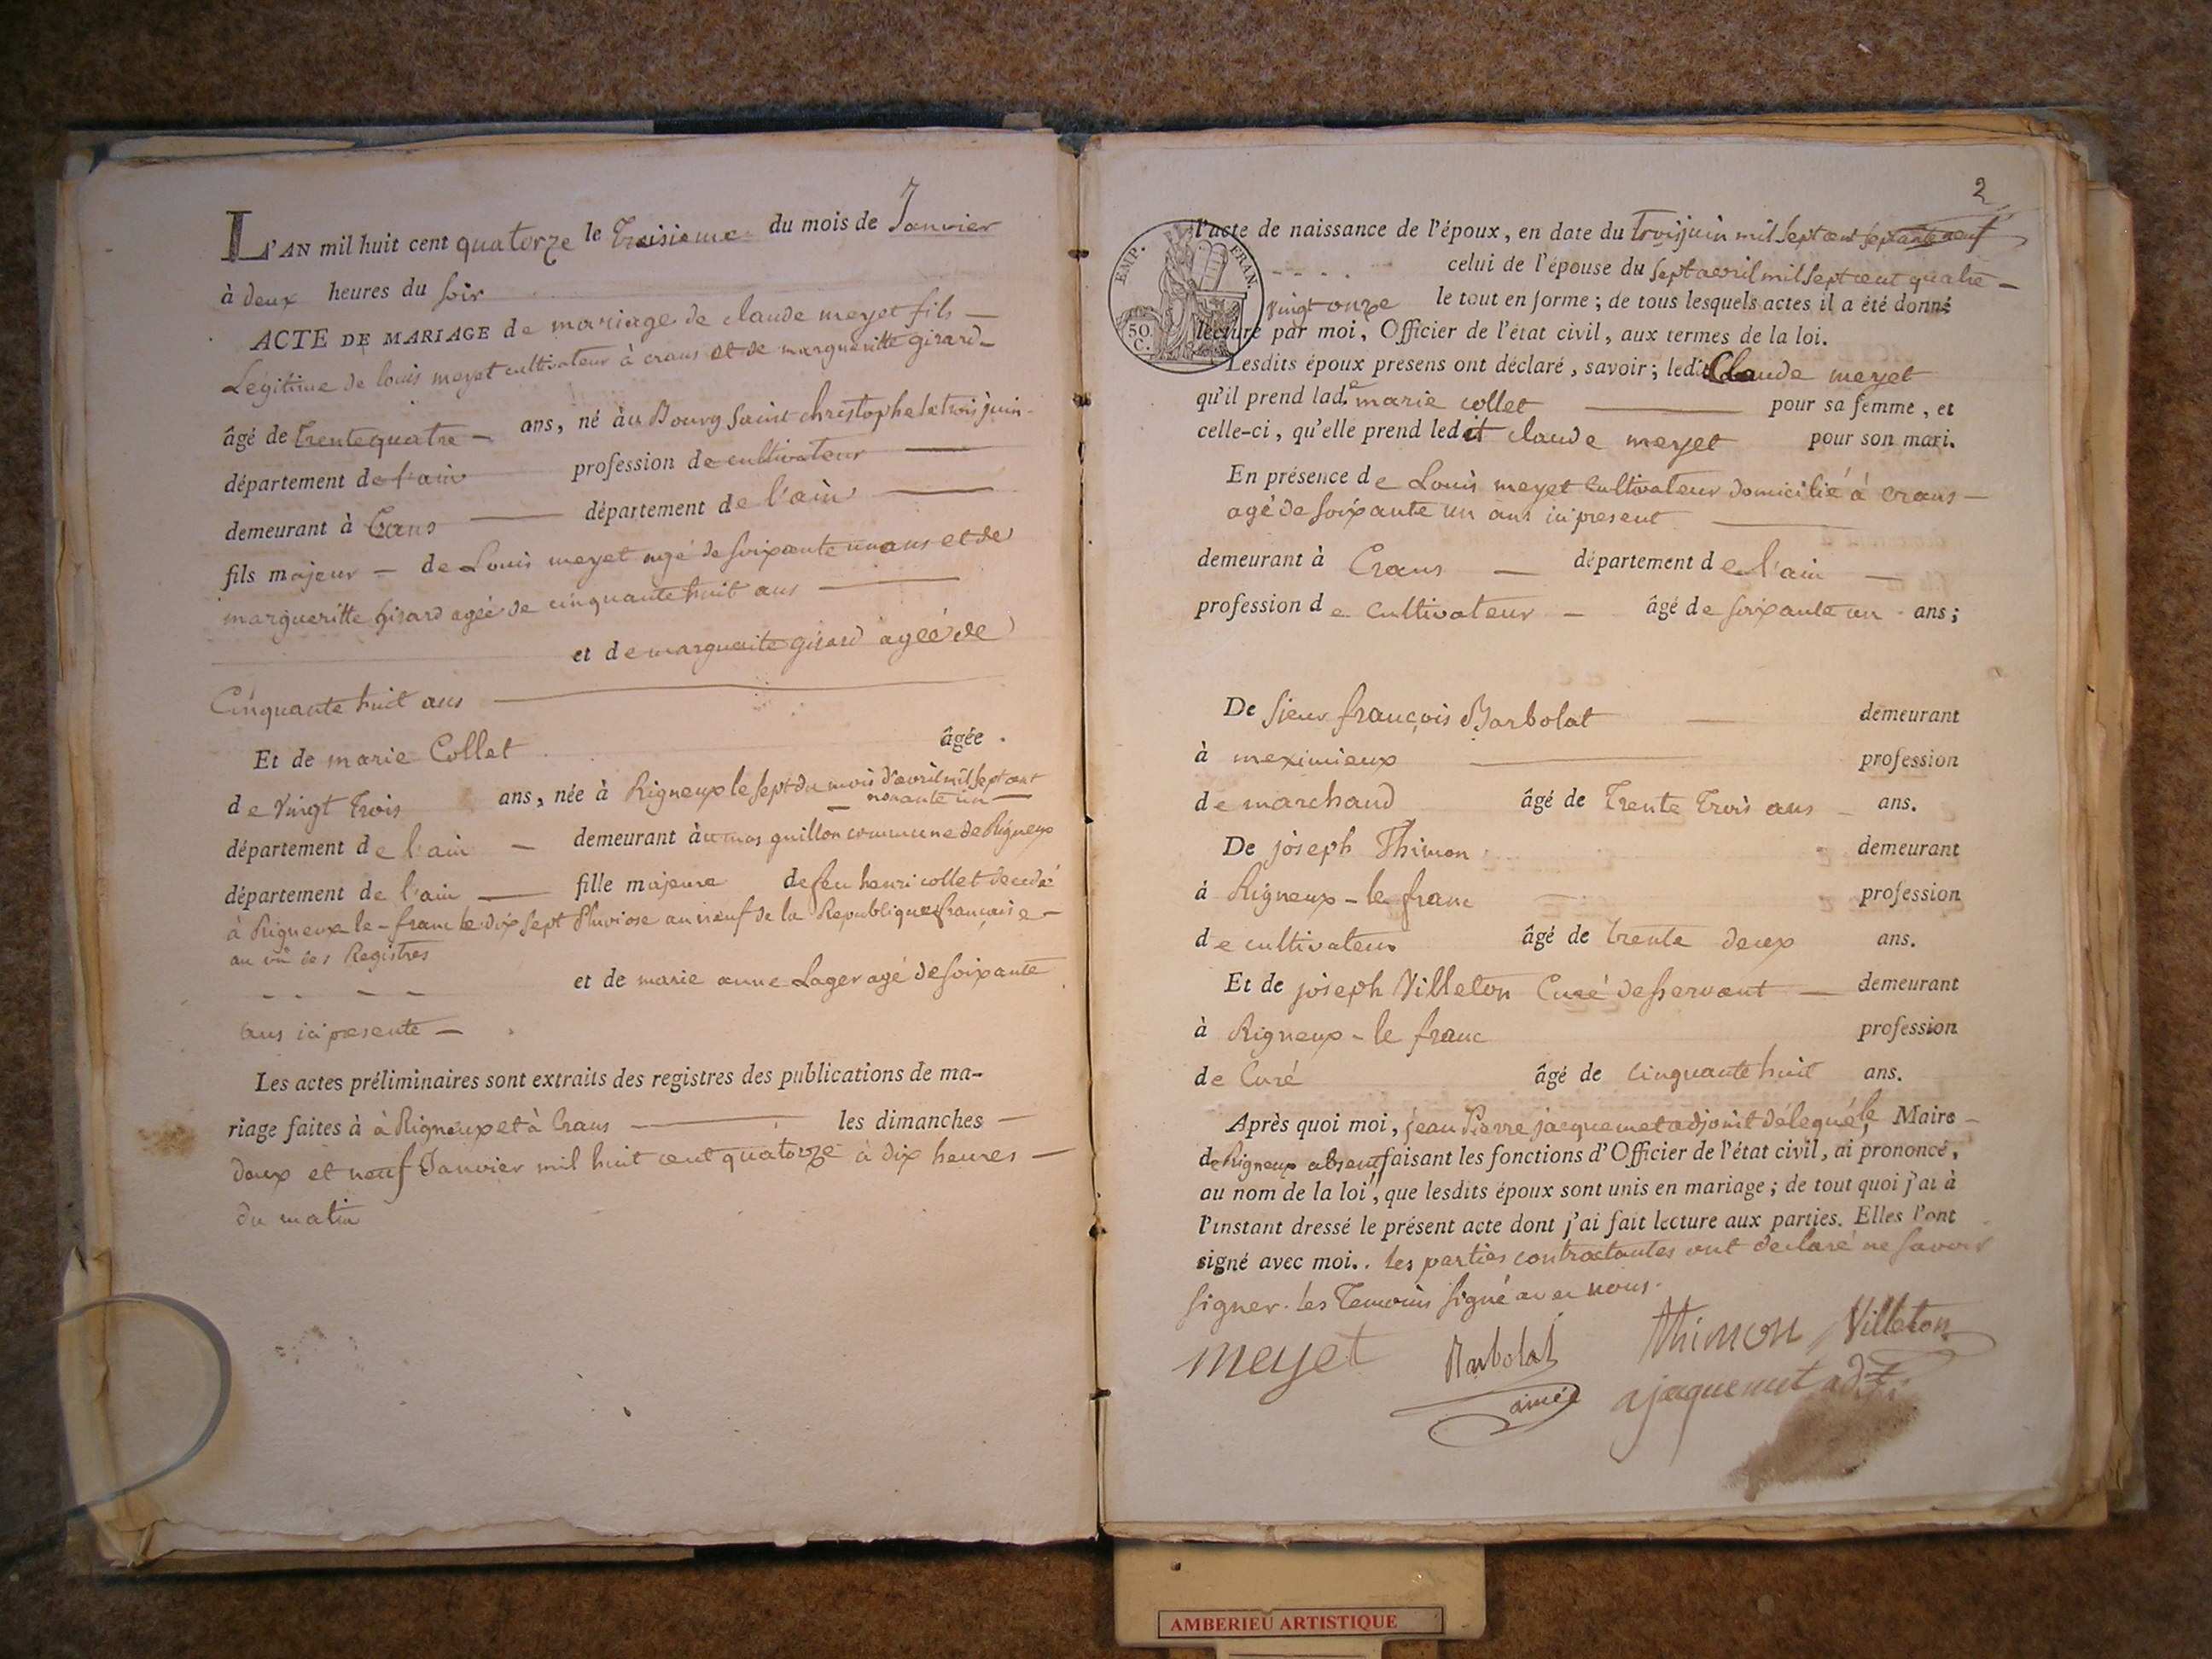 L'AN mil huit cent quatorze le troisieme du mois de Janvier
à deux heures du soir
ACTE DE MARIAGE de mariage de claude meyet fils
Légitime de louis meyet cultivateur à crans et de margueritte girard
âgé de trente quatre ans, né àu Bourg saint christophe le trois juin
département de l'ain profession de cultivateur
demeurant à Crans département de l'ain
fils majeur de Louis meyet agé de soixante un ans et de
margueritte girard agée de cinquante huit ans
et de margueritte girard agée de
Cinquante huit ans
Et de marie Collet âgée
de vingt trois ans, née à Rigneux le sept du mois d'avril mil sept cent
nonante un
département de l'ain demeurant àu mas guillon commune de Rigneux
département de l'ain fille majeure de feu henri collet decedé
à Rigneux le-franc le dix sept Pluviose an neuf de la Republique française
au vû des Registres
et de marie anne Lager agé de soixante
ans ici presente
Les actes préliminaires sont extraits des registres des publications de ma-
riage faites à à Rigneux et à Crans les dimanches
deux et neuf Janvier mil huit cent quatorze à dix heures
du matin
2
l'acte de naissance de l'époux, en date du trois juin mil sept cent septante neuf
celui de l'épouse du sept avril mil sept cent quatre
EMP. FRAN.
50 C.
vingt onze le tout en forme ; de tous lesquels actes il a été donné
lecture par moi, Officier de l'état civil, aux termes de la loi.
Lesdits époux presens ont déclaré, savoir ; ledit Claude meyet
qu'il prend lad.e marie collet pour sa femme, et
celle-ci, qu'elle prend ledit claude meyet pour son mari.
En présence de Louis meyet Cultivateur domicilié à crans
agé de soixante un ans ici present
demeurant à Crans département de l'ain
profession de Cultivateur âgé de soixante un ans ;
De sieur françois Barbolat demeurant
à meximieux profession
de marchand âgé de trente trois ans ans.
De joseph Thimon demeurant
à Rigneux-le franc profession
de cultivateur âgé de trente deux ans.
Et de joseph Villeton Curé desservant demeurant
à Rigneux-le franc profession
de Curé âgé de cinquante huit ans.
Après quoi moi, jean Pierre jacquemet adjoint délegué, le Maire
de Rigneux absent faisant les fonctions d'Officier de l'état civil, ai prononcé,
au nom de la loi, que lesdits époux sont unis en mariage ; de tout quoi j'ai à
l'instant dressé le présent acte dont j'ai fait lecture aux parties. Elles l'ont
signé avec moi.. les parties contractantes ont declaré ne savoir
signer. les temoins signé avec nous.
meyet Barbolat thimon Villeton
ainée jaquemet adjt
AMBERIEU ARTISTIQUE